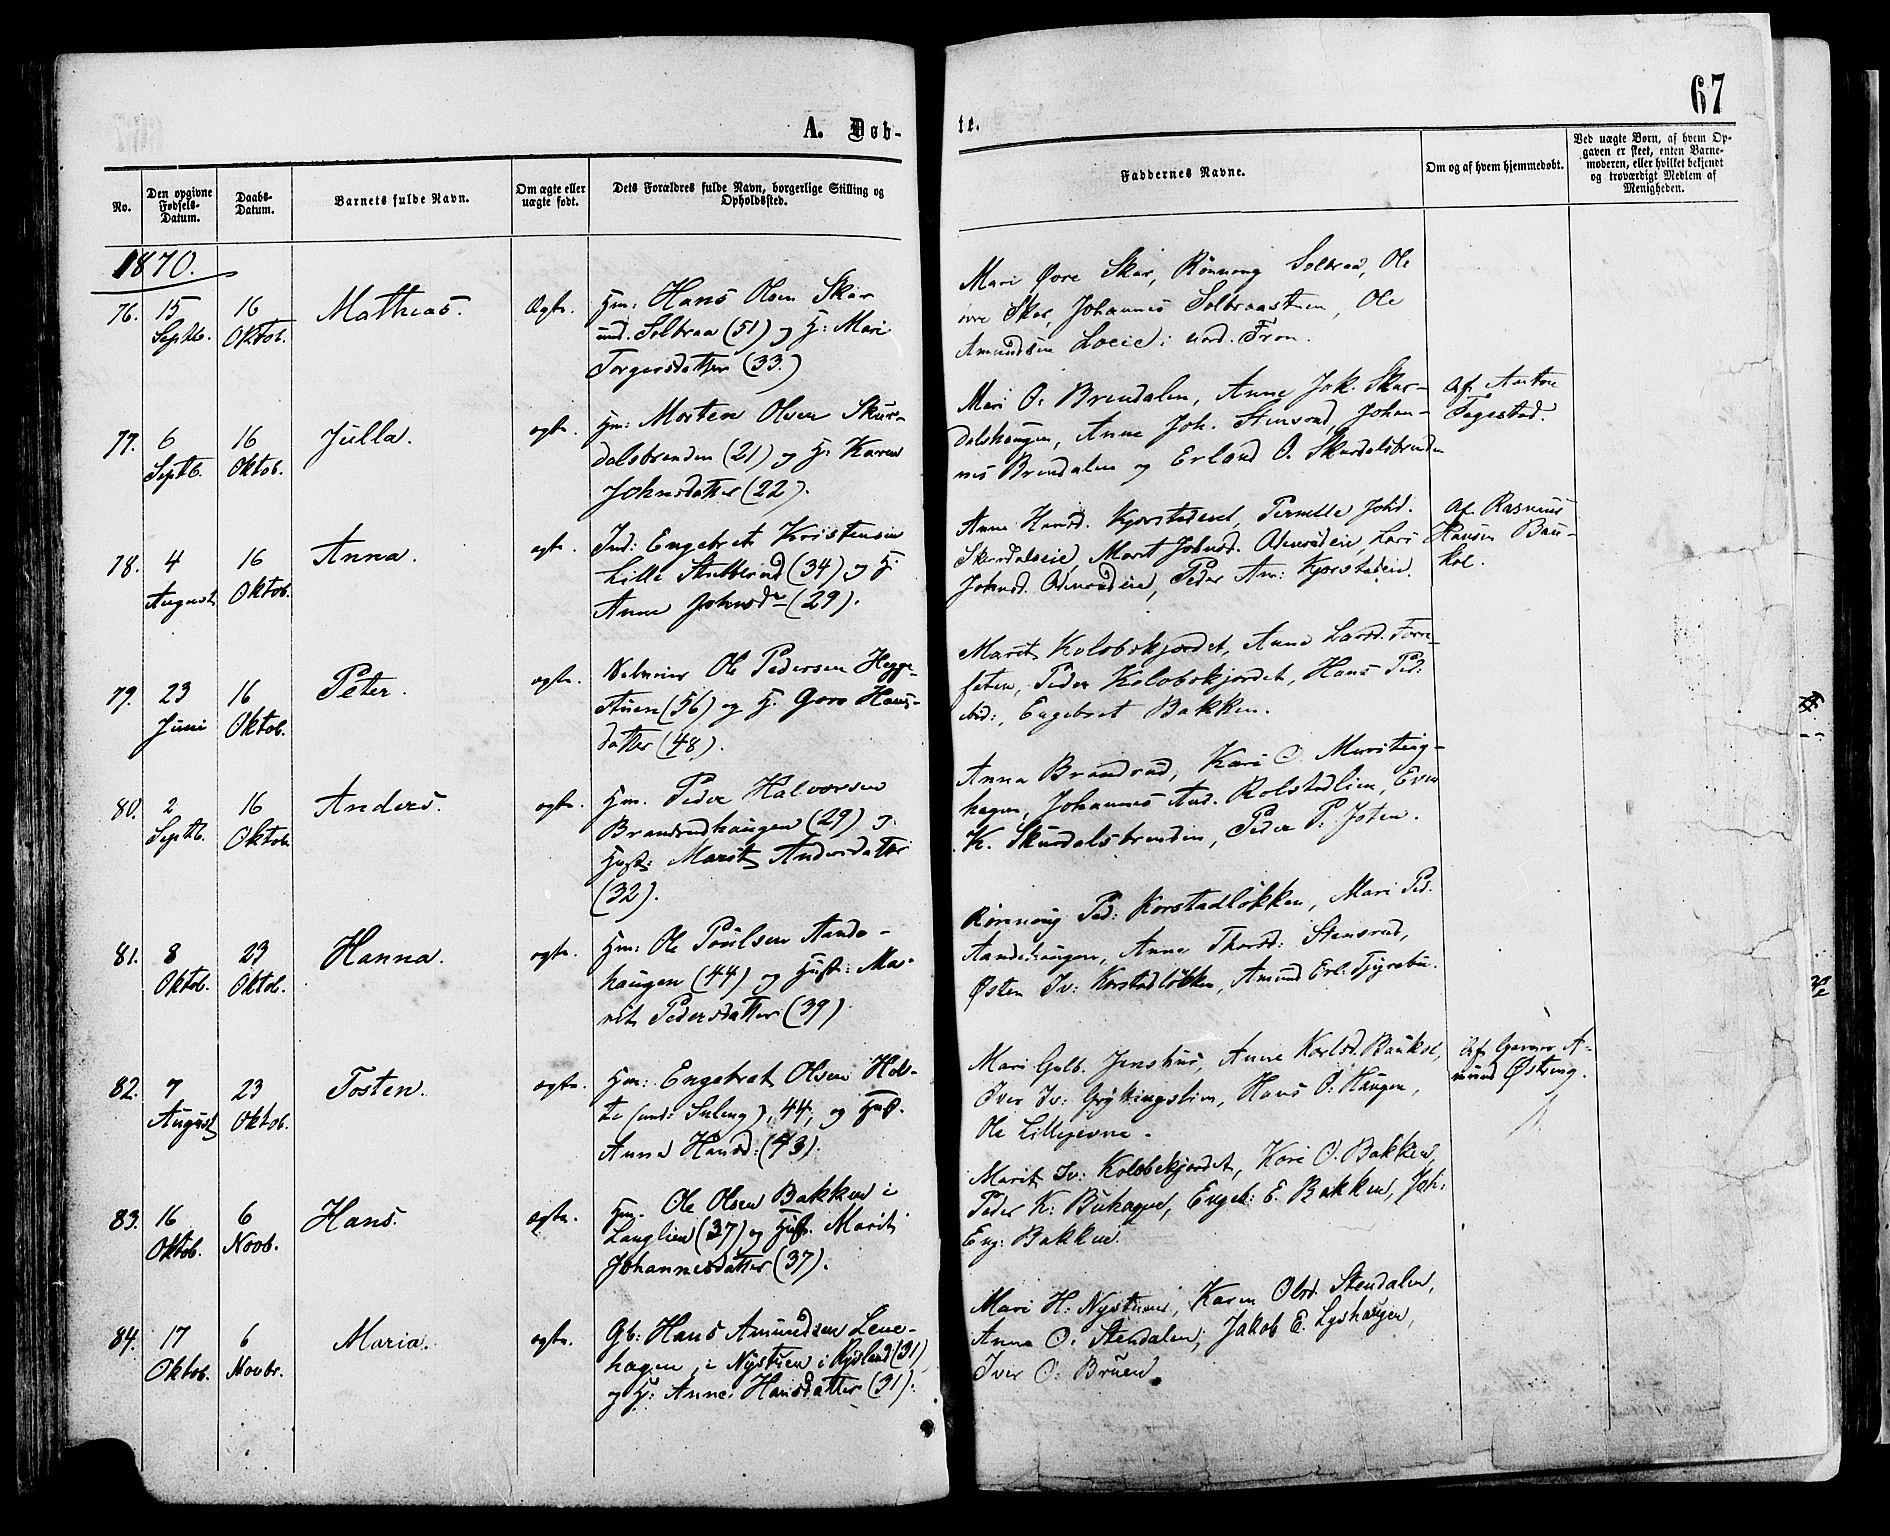 67
A. Døb-
te.
No.
Den opgivne
Fødsels-
Datum.
Daabs-
Datum.
Barnets fulde Navn.
Om ægte eller
uægte født.
Dets Forældres fulde Navn, borgerlige Stilling og
Opholdssted.
Faddernes Navne.
Om og af hvem hjemmedøbt.
Ved uægte Børn, af hvem Op-
gaven er skeet, enten Barne-
moderen, eller hvilket bekjendt
og troværdigt Medlem af
Menigheden.
1870.
76. 15 Septb.
16 Oktob.
Mathias.
Ægte.
Hm: Hans Olsen Skar
und. Solbraa (51) og H: Mari
Torgersdatter (33.)
Mari Øvre Skar, Rønnaug Solbraa, Ole
øvre Skar, Johannes Solbraastuen, Ole
Amundsen Loeie i nord. Fron.
77. 6 Septb.
16 Oktob.
Julla.
ægte.
Hm: Morten Olsen Skur-
dalsbrenden (21) og H: Karen
Johnsdatter (22).
Mari O. Brendalen, Anne Joh. Skur-
dalshaugen, Anne Joh. Stensrud, Johan-
nes Brendalen og Erland O. Skurdalsbrenden
Af Anton
Fagestad.
78. 4 August
16 Oktob.
Anna.
ægte.
Ind: Engebret Kristensen
Lille Stubberud (34) og H:
Anne Johnsdr (29).
Anne Hansd. Kjorstadeiet, Pernille Johd.
Skurdalseie, Marit Johnsd. Odenrudeie, Lars
Johnsd. Odenrudeie, Peder Am: Kjorstadeie.
Af Rasmus
Hansen Bau-
kol.
79. 23 Juni
16 Oktob.
Peter.
ægte.
Selveier Ole Pedersen Hegge-
stuen (56) og H. Goro Hans-
datter (48).
Marit Kolobekjordet, Anne Larsd. Forre-
feten, Peder Kolobekjordet, Hans Ped:
ibid:, Engebret Bakken.
80. 2 Septb.
16 Oktob.
Anders.
ægte.
Hm. Peder Halvorsen
Brandrudhaugen (29) og
Hust: Marit Andersdatter
(32).
Anna Brandrud, Kari O. Mursting-
hagen, Johannes And. Rolstadlien, Even
K. Skurdalsbrenden, Peder P. Joten.
81. 8 Oktob.
23 Oktob.
Hanna.
ægte.
Hm: Ole Poulsen Aande-
haugen (44) og Hust: Ma-
rit Pedersdatter (39)
Rønnaug Ped: Korstadløkken, Mari Ped.
Aandehaugen, Anne Thorsd: Stensrud,
Østen Iv: Korstadløkken, Amund Erl. Tjyrebu.
82. 7 August
23 Oktob.
Tosten.
ægte.
Hm: Engebret Olsen Hol-
te (und: Suleng), 44, og Hust.
Anne Hansd: (43).
Mari Gulb. Jenshus, Anne Karlsd. Baukol,
Iver Iv: Grytingslien, Hans O: Haugen,
Ole Lillejevne.
Af Gamer A-
mund Østeng.
83. 16 Oktob.
6 Novb.
Hans.
ægte.
Hm. Ole Olsen Bakken i
Langlien (37) og Hust. Marit
Johannesdatter (37).
Marit Iv: Kolobekjordet, Kari O. Bakken,
Peder K: Buhagen, Engeb: E. Bakken, Joh:
Eng: Bakken.
84. 17 Oktob.
6 Novbr.
Maria.
ægte.
Gb: Hans Amundsen Leve-
hagen, i Nystuen i Rysland (31)
og H: Anne Hansdatter (31).
Mari H: Nystuen, Karen Olsd. Stendalen,
Anne O: Stendalen, Jakob E. Lyshaugen,
Iver O: Bruen.